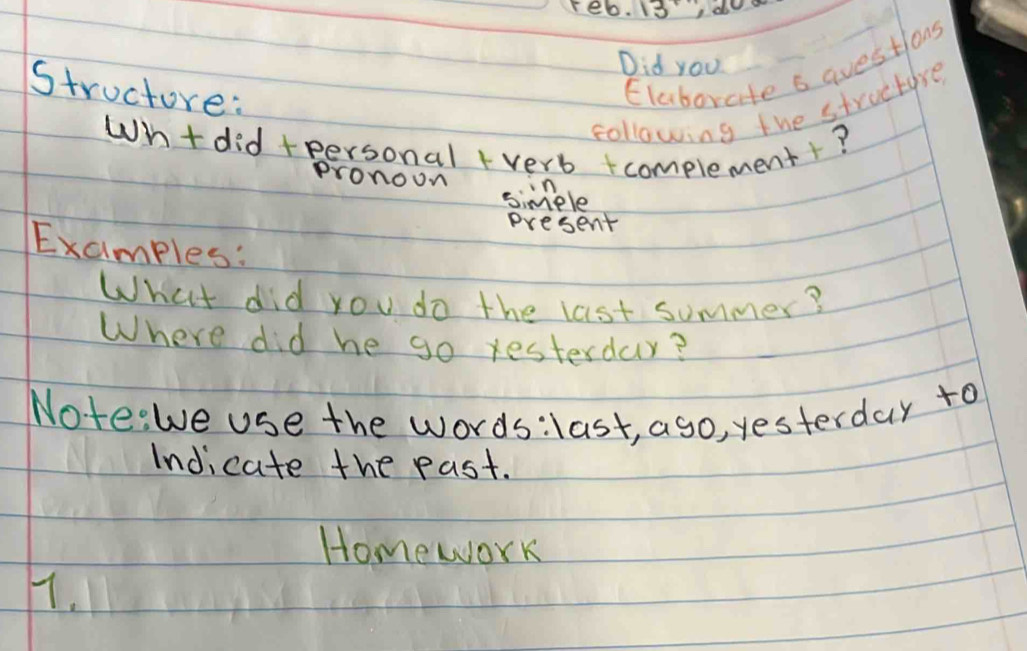 Feb. 13th, 20
Did you
Elaborate 5 questions
following the structure.
Structure:
Wh + did + personal + verb + complement + ?
pronoun in
simple
present
Examples:
What did you do the last summer?
Where did he go yesterday?
Note: We use the words: last, ago, yesterday to
Indicate the past.
Homework
1.